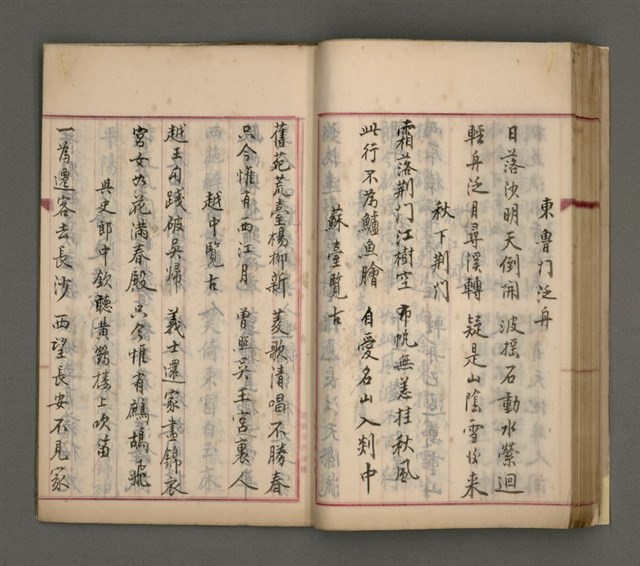 東魯門泛舟
日落沙明天倒開　波搖石動水縈迴
輕舟泛月尋溪轉　疑是山陰雪後来
秋下荆門
霜落荆门江樹空　布帆無恙挂秋風
此行不為鱸魚膾　自愛名山入剡中
蘇臺覽古
舊苑荒臺楊柳新　菱歌清唱不勝春
只今惟有西江月　曾照吳王宫裏人
越中覽古
越王勾踐破吳歸　義士還家盡錦衣
宫女如花滿春殿　只今惟有鷓鴣飛
與史郎中欽聽黄鶴樓上吹笛
一為遷客去長沙　西望長安不見家